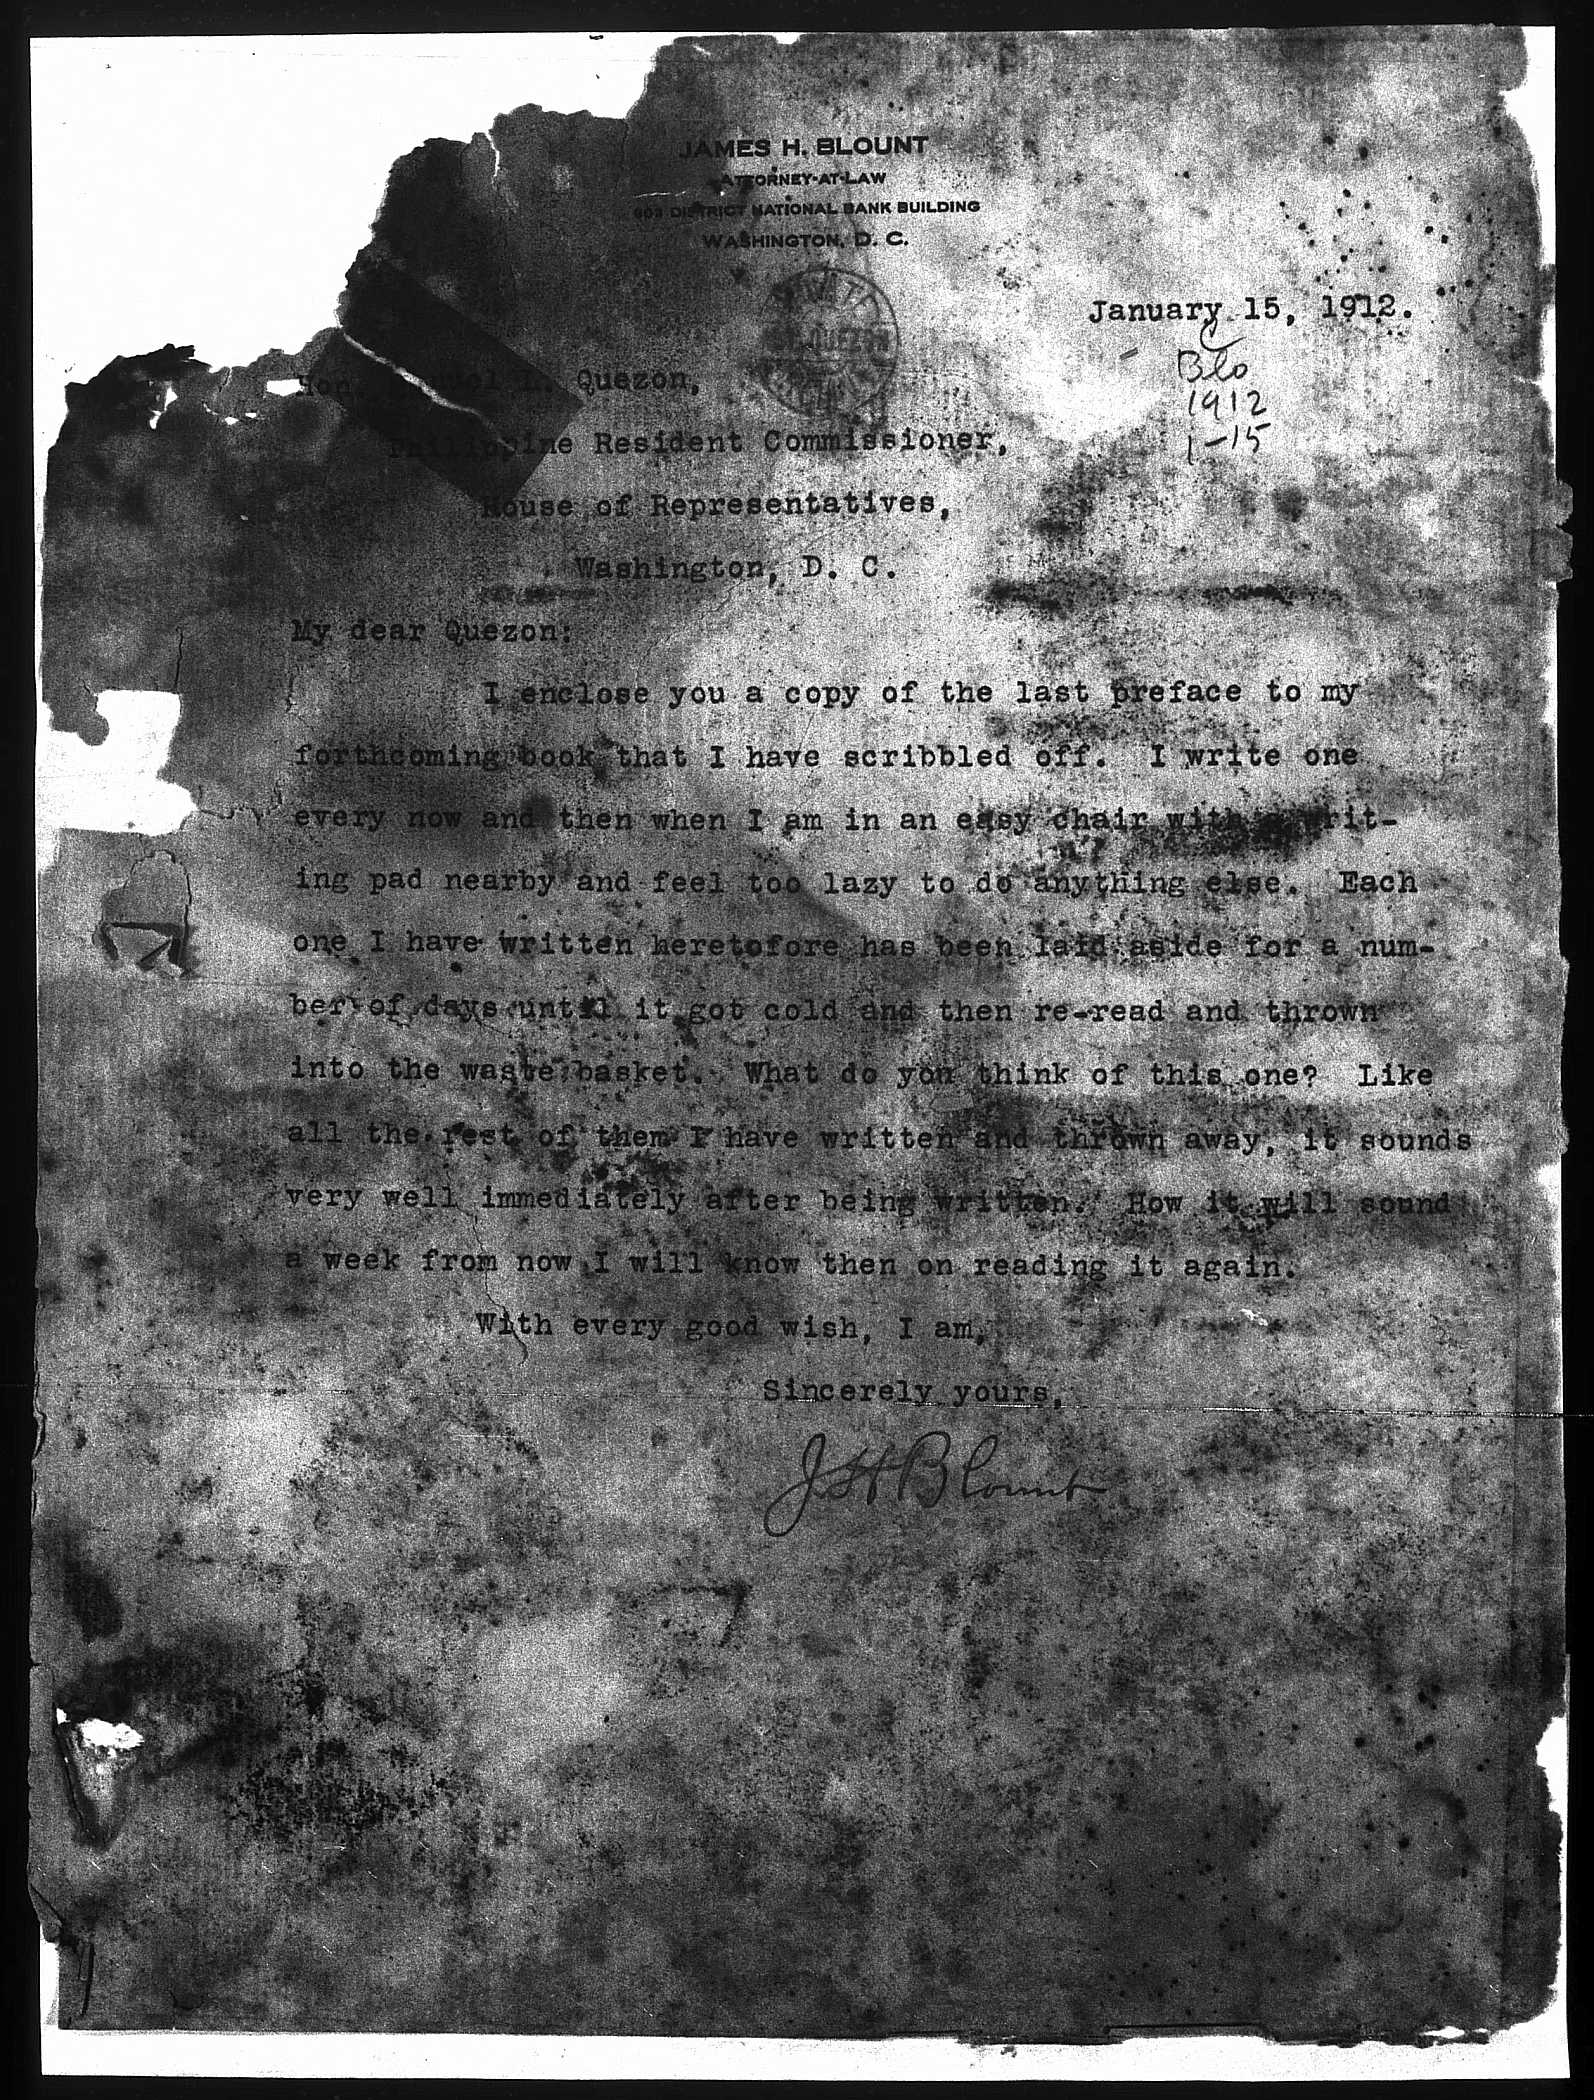 JAMES H. BLOUNT
ATTORNEY-AT-LAW
DISTRICT NATIONAL BANK BUILDING
WASHINGTON, D. C.
January 15, 1912.
C
Blo
1912
1-15
Hon. Manuel Quezon,
Philippine Resident Commissioner,
House of Representatives,
Washington, D. C.
My dear Quezon:
I enclose you a copy of the last preface to my
forthcoming book that I have scribbled off. I write one
every now and then when I am in an easy chair with a writ-
ing pad nearby and feel too lazy to do anything else. Each
one I have written heretofore has been laid aside for a num-
ber of days until it got cold and then re-read and thrown
into the waste basket. What do you think of this one? Like
all the rest of them I have written and thrown away, it sounds
very well immediately after being written. How it will sound
a week from now I will know then on reading it again.
With every good wish, I am,
Sincerely yours,
J H Blount